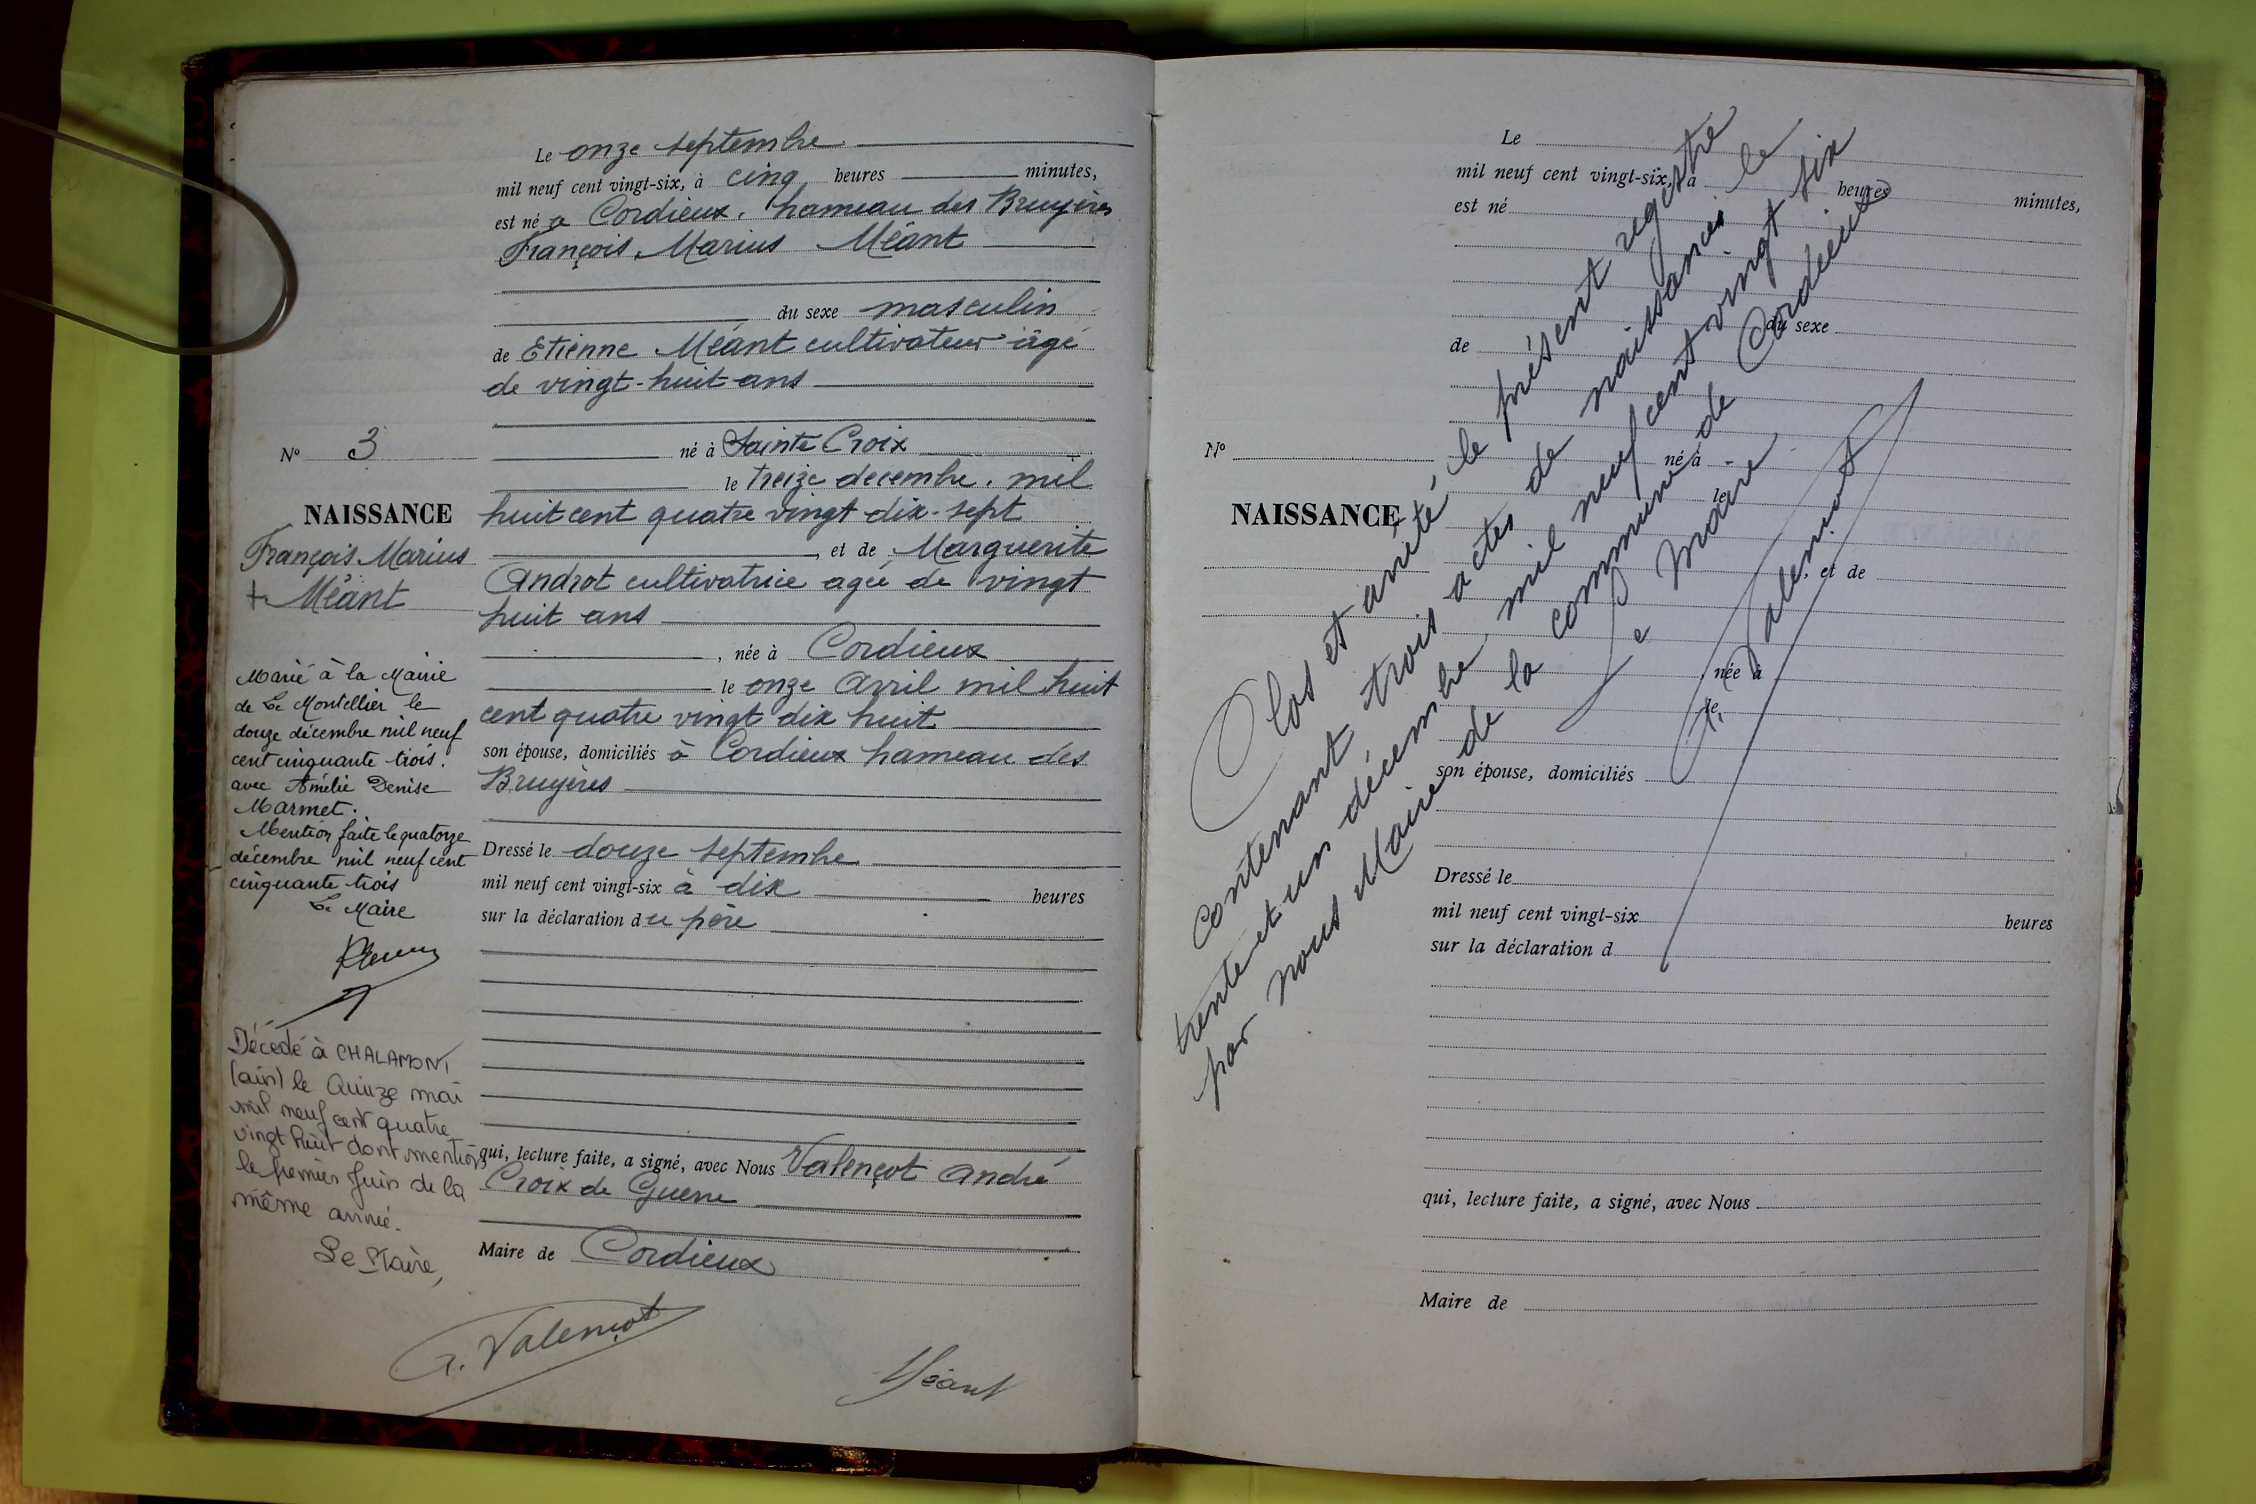 Le onze septembre
mil neuf cent vingt-six, à cinq heures minutes,
est né à Cordieux, hameau des Bruyères
François, Marius Méant
du sexe masculin
de Etienne Méant cultivateur âgé
de vingt-huit ans
né à Sainte Croix
le treize decembre, mil
huit cent quatre vingt dix-sept
, et de Marguerite
Androt cultivatrice agée de vingt
huit ans
, née à Cordieux
le onze Avril mil huit
cent quatre vingt dix huit
son épouse, domiciliés à Cordieux hameau des
Bruyères
Dressé le douze septembre
mil neuf cent vingt-six à dix heures
sur la déclaration du père
qui, lecture faite, a signé, avec Nous Valençot André
Croix de Guerre
Maire de Cordieux
A. Valençot
Méant
Nº 3
NAISSANCE
François Marius
+ Méant
Marié à la Mairie
de Le Montellier le
douze décembre mil neuf
cent cinquante trois.
avec Amélie Denise
Marmet.
Mention faite le quatorze
décembre mil neuf cent
cinquante trois
Le Maire
Décédé à CHALAMONT
(ain) le Quinze mai
mil neuf cent quatre
vingt huit dont mention
le premier Juin de la
même année.
Le Maire,
Le
mil neuf cent vingt-six, à heures minutes,
est né
du sexe
de
Nº
né à
le
NAISSANCE
, et de
, née à
le
son épouse, domiciliés
Dressé le
mil neuf cent vingt-six heures
sur la déclaration d
qui, lecture faite, a signé, avec Nous
Maire de
Clos et arrêté le présent registre
contenant trois actes de naissances le
trente et un décembre mil neuf cent vingt six
par nous Maire de la commune de Cordieux
Le Maire
A. Valençot